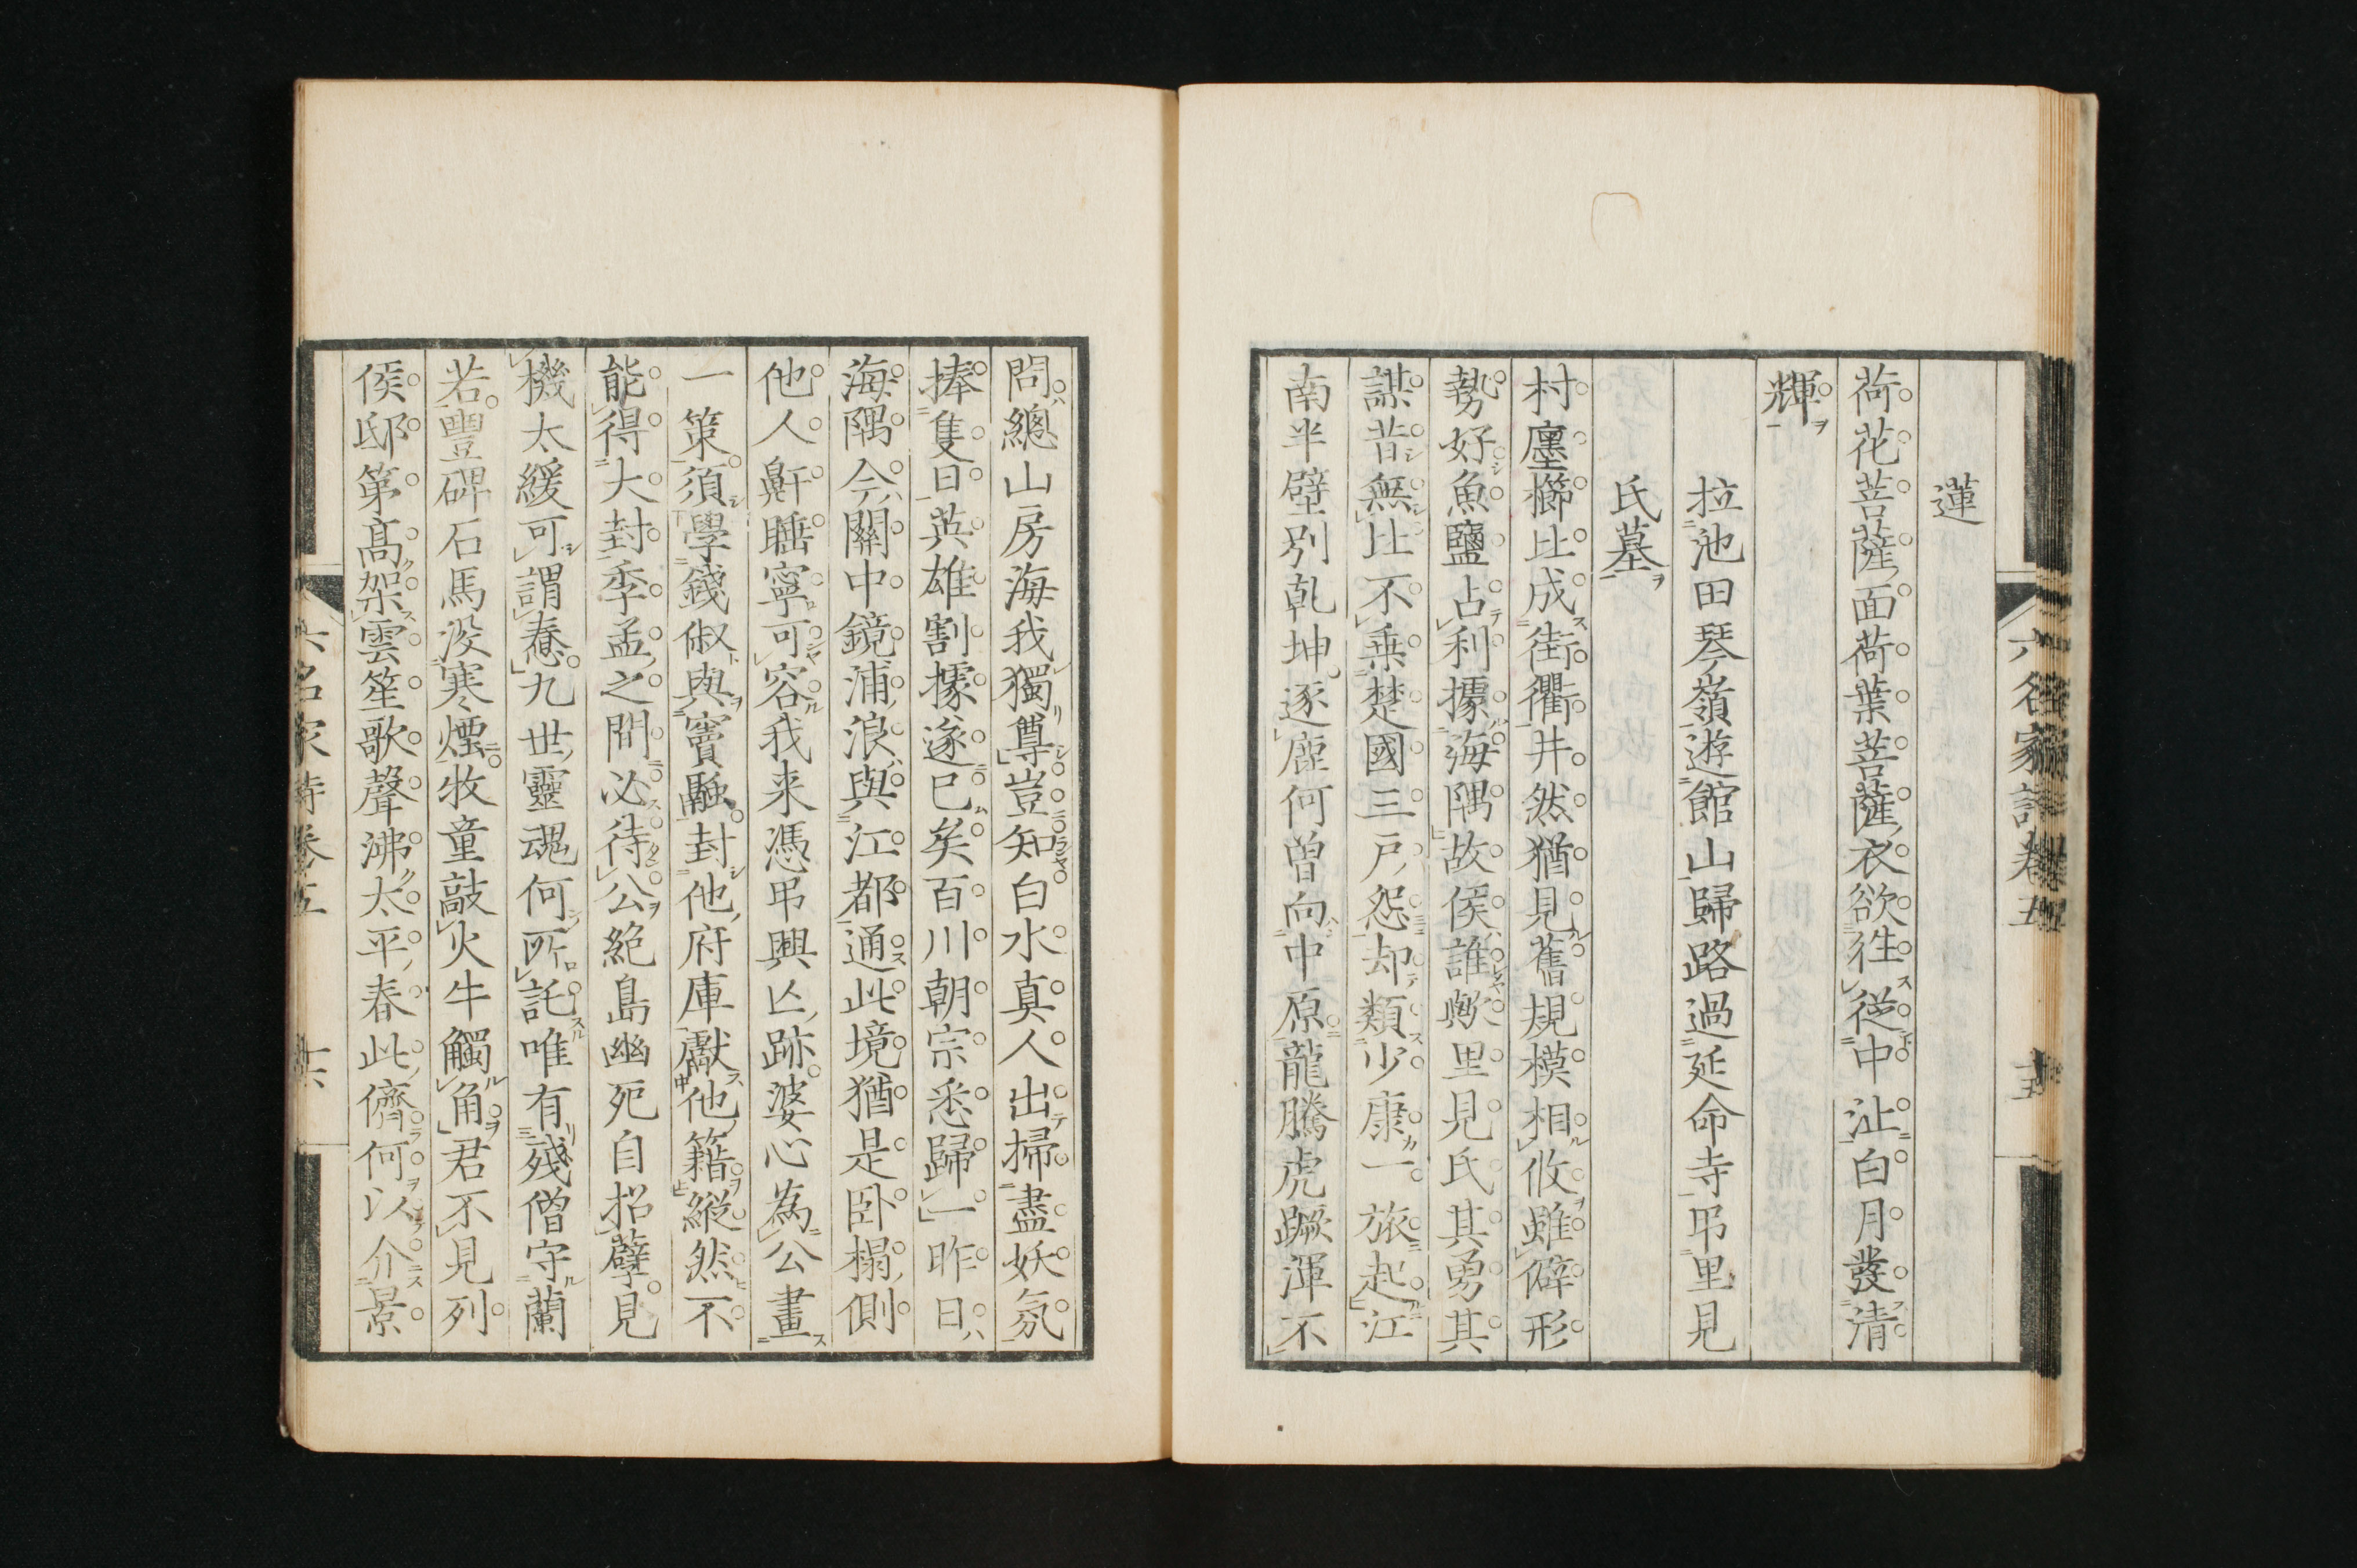 蓮
荷花菩薩面荷葉菩薩衣欲往從中沚白月發清
輝
拉池田琴嶺遊館山歸路過延命寺弔里見
氏墓
村廛櫛比成街衢井然猶見舊規模相攸雖僻形
勢好魚鹽占利據海隅故侯誰歟里見氏其勇其
謀昔無比不乗楚國三戸怨却類少康一旅起江
南半壁別乾坤逐鹿何曽向中原龍騰虎蹶渾不
六名家詩卷五
十五
問總山房海我獨尊豈知白水真人出掃盡妖氛
捧隻日英雄割據遂已矣百川朝宗悉歸一昨日
海隅今關中鏡浦浪與江都通此境猶是卧榻側
他人鼾睡寧可容我来憑弔興亾跡婆心為公畫
一策須學錢俶與竇融封他府庫獻他籍縱然不
能得大封季孟之間必待公絶島幽死自招孽見
機太緩可謂惷九世靈魂何所託唯有殘僧守蘭
若豐碑石馬没寒煙牧童敲火牛觸角君不見列
侯邸第髙架雲笙歌聲沸太平春此儕何以介景
六名家詩卷五
十六